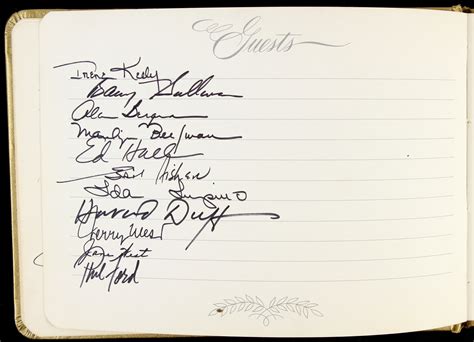 Guests
Irene Keely
Barry Sullivan
Alan Bergman
Marilyn Bergman
Ed Hall
Gail Fisher
Ida Lupino
Howard Duff
Jerry West
Jane West
Ford